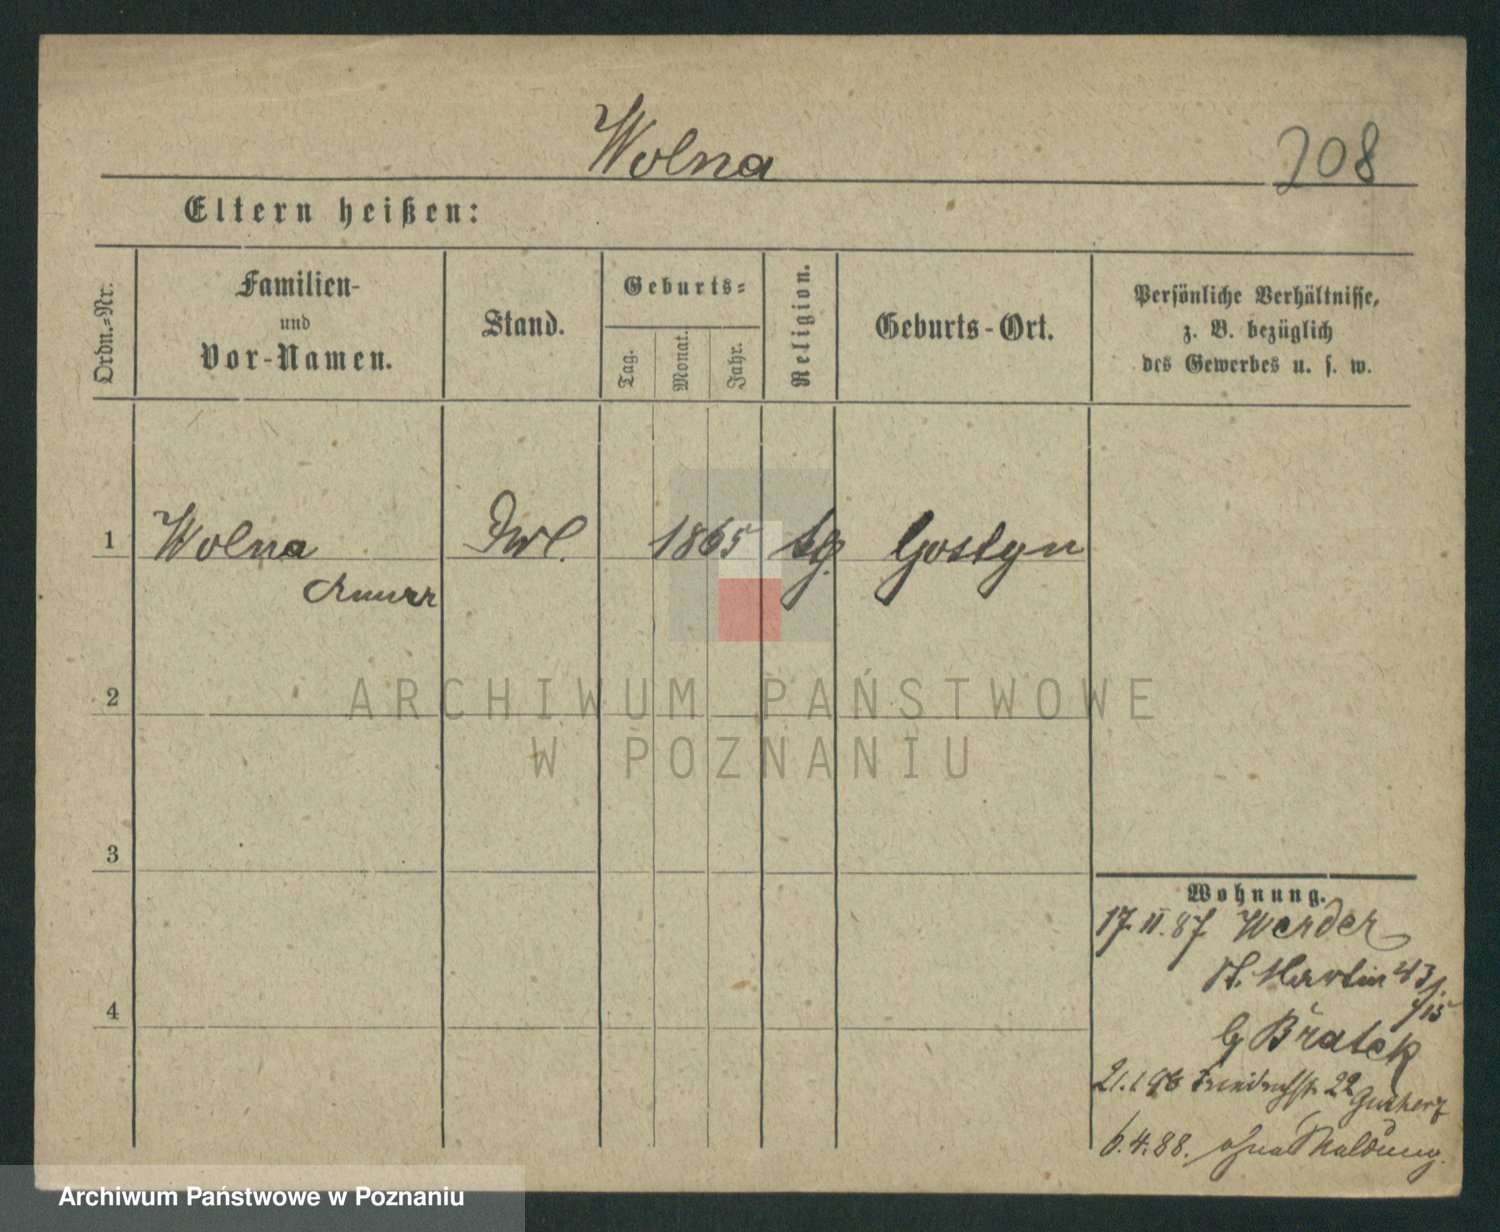 Wolna
208
Eltern heißen:
Ordn.-Nr.
Familien-
und
Vor-Namen.
Stand.
Geburts-
Tag.
Monat.
Jahr.
Religion.
Geburts-Ort.
Persönliche Verhältnisse,
z. B. bezüglich
des Gewerbes u. s. w.
1
Wolna
1865
Gostyn
2
3
4
Wohnung.
17. 11. 87. Werder
St. Martin 43
b Bratek
Friedrichstr. 22
6.4.88. ohne Meldung.
ARCHIWUM PAŃSTWOWE
W POZNANIU
Archiwum Państwowe w Poznaniu